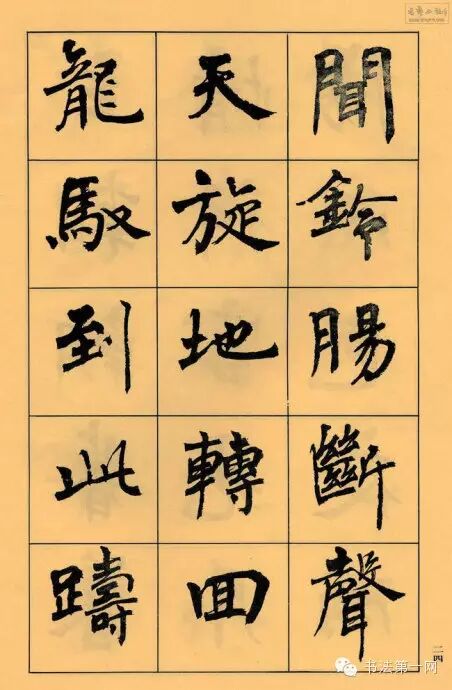 聞鈴腸斷聲
天旋地轉回
龍馭到此躊
二四
书法第一网